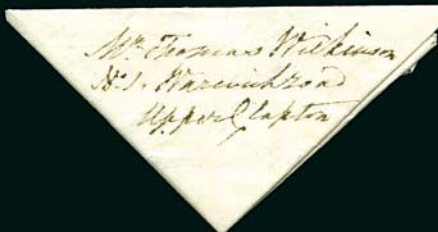 Mr. Thomas Wilkinson
No. 1. Warwick road
Upper Clapton